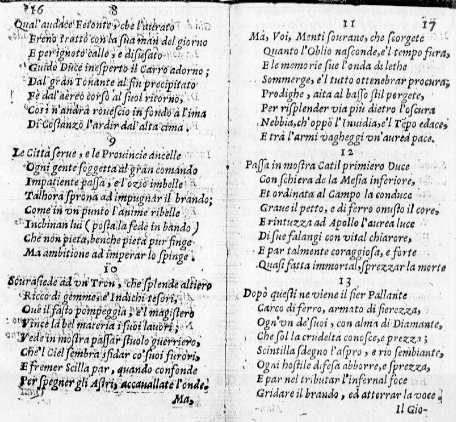 16 8
Qual'audace Fetonte, che l'aurato
Freno trattò con la sua man del giorno
E per ignoto callo, e disusato
Guidò Duce inesperto il Carro adorno;
Dal gran Tonante al fin precipitato
Fè dal'aereo corso al suol ritorno,
Così n'andrà rouescio in fondo à l'ima
Di Costanzo l'ardir dal'alta cima.
9
Le Città serue, e le Prouincie ancelle
Ogni gente soggetta al gran comando
Impatiente passa, e l'ozio imbelle
Talhora sprona ad impugnar il brando;
Come in vn punto l'anime ribelle
Inchinan lui (posta la fede in bando)
Che non pietà, benche pietà pur finge
Ma ambitione ad imperar lo spinge.
10
Scurasiede ad vn Tron, che splende altiero
Ricco di gemme, e Indichi tesori,
Oue il fasto pompeggia, e'l magistero
Vince la bel materia i suoi lauori;
Vede in mostra passar stuolo guerriero,
Che'l Ciel sembra sfidar co' suoi furori,
E fremer Scilla par, quando confonde
Per spegner gli Astri, accauallate l'onde.
Ma,
11 17
Mà, Voi, Menti sourane, che scorgete
Quanto l'Oblio nasconde, e'l tempo fura,
E le memorie sue l'onda di lethe
Sommerge, e'l tutto ottenebrar procura;
Prodighe, aita al basso stil pergete,
Per risplender via più dietro l'oscura
Nebbia, ch'oppò l'Inuidia, e'l Tẽpo edace,
E trà l'armi vagheggi vn'aurea pace.
12
Passa in mostra Catil primiero Duce
Con schiera de la Mesia inferiore,
Et ordinata al Campo la conduce
Graue il petto, e di ferro onusto il core,
E rintuzza ad Apollo l'aurea luce
Di sue falangi con vital chiarore,
E par talmente coraggiosa, e forte
Quasi fatta immortal, sprezzar la morte
13
Dopò questi ne viene il fier Pallante
Carco di ferro, armato di fierezza,
Ogn'vn de'suoi, con alma di Diamante,
Che sol la crudelta conosce, e prezza;
Scintilla sdegno l'aspro, e rio sembiante,
Ogni hostile difesa abborre, e sprezza,
E par nel tributar l'infernal foce
Gridare il brando, ed atterrar la voce.
Il Gio-